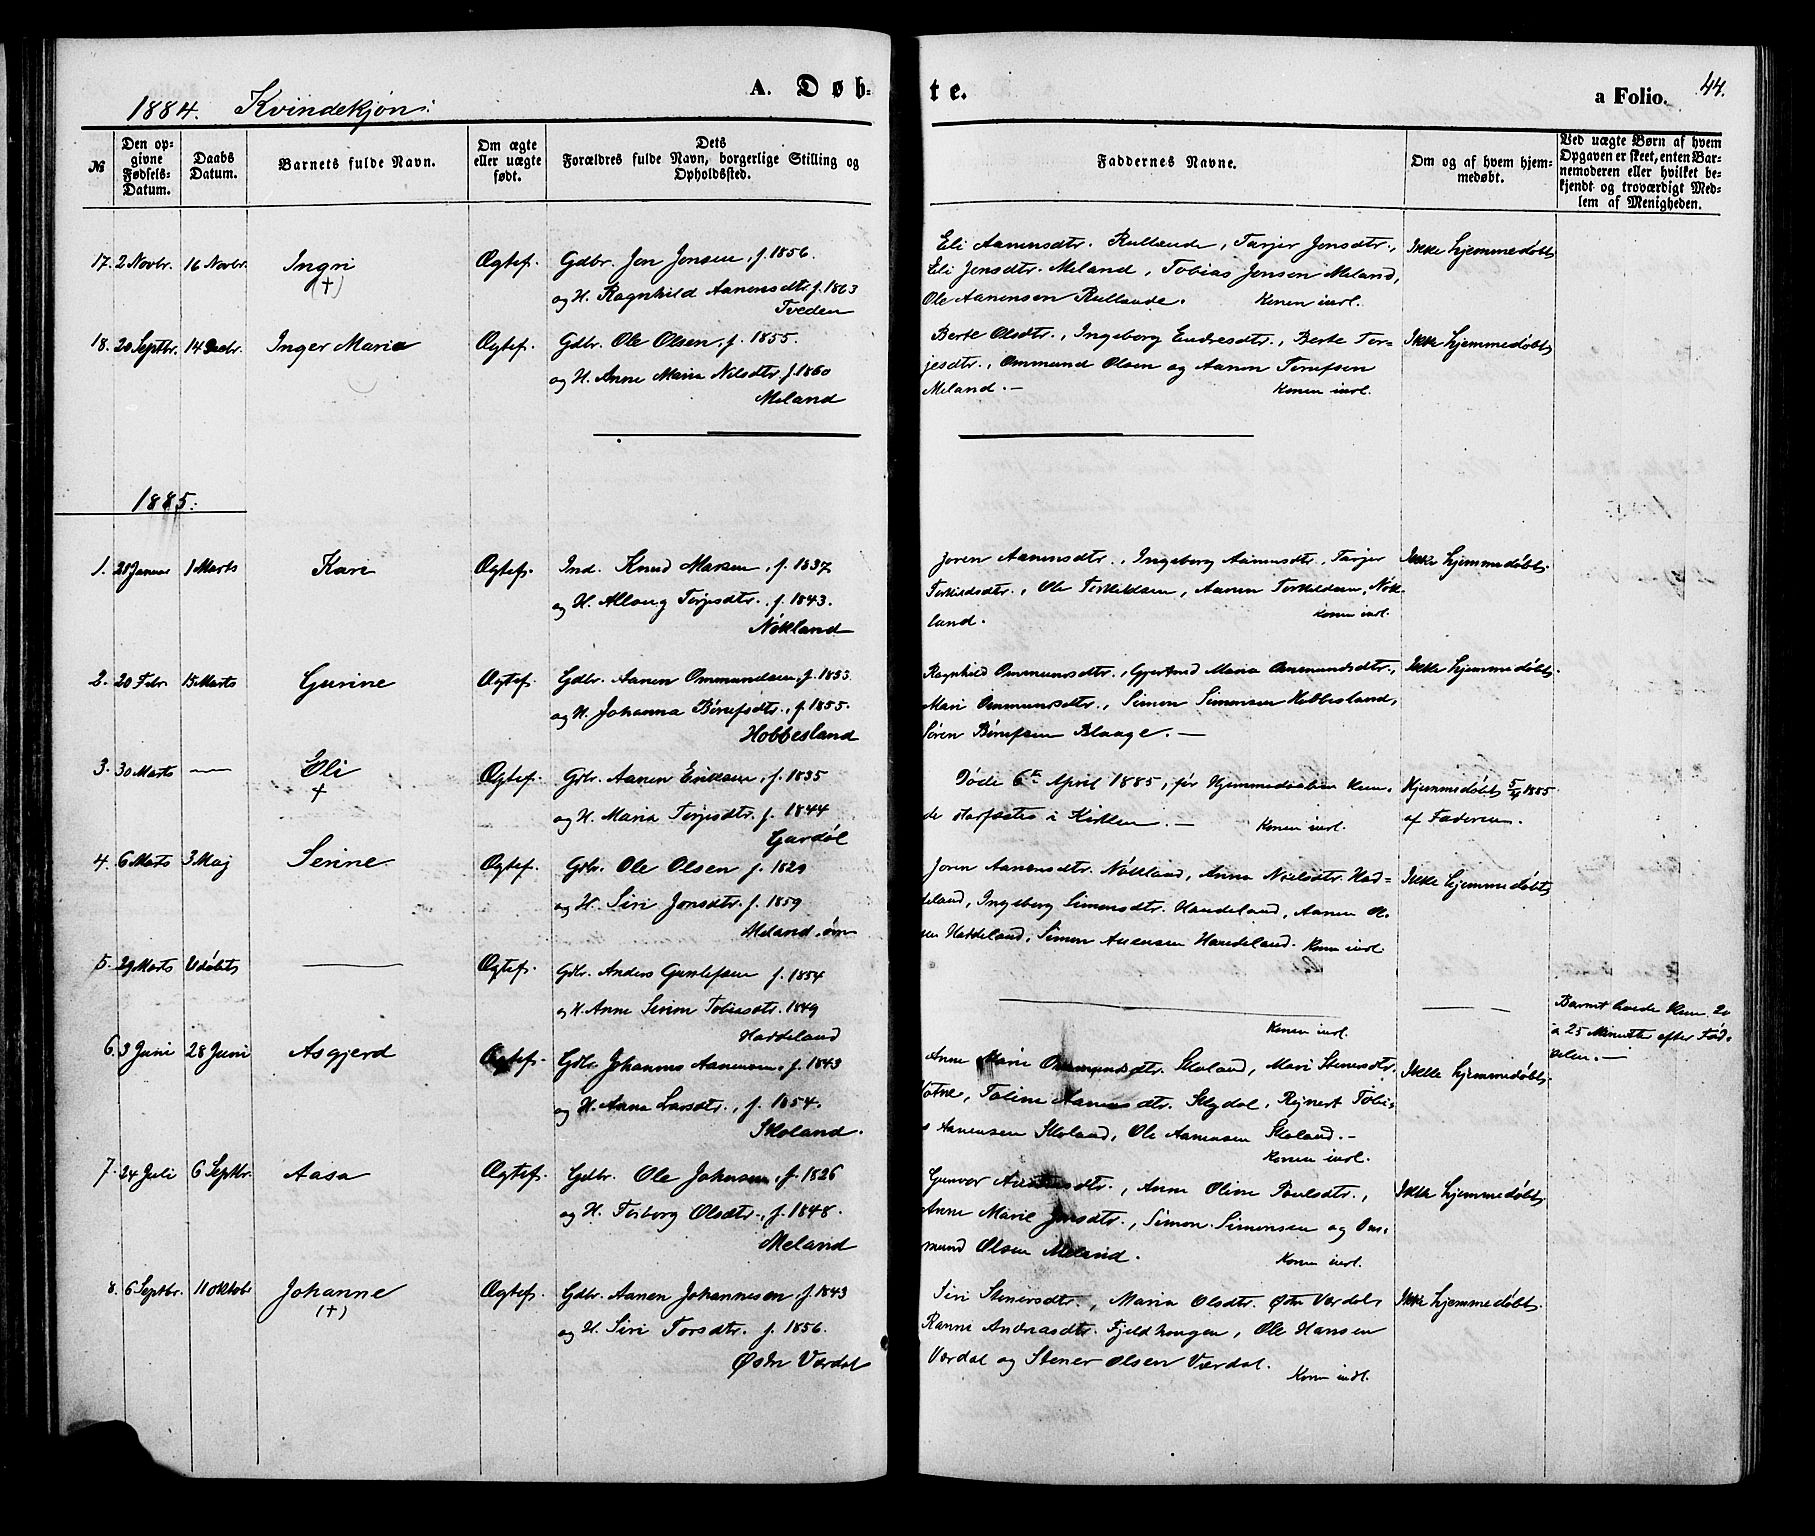 1884. Kvindekjøn:
A. Døb-
te.
a Folio. 44.
№
Den op-
givne
Fødsels-
Datum.
Daabs
Datum.
Barnets fulde Navn.
Om ægte
eller uægte
født.
Dets
Forældres fulde Navn, borgerlige Stilling og
Opholdssted.
Faddernes Navne.
Om og af hvem hjem-
medøbt.
Ved uægte Børn af hvem
Opgaven er skeet, enten Bar-
nemoderen eller hvilket be-
kjendt og troværdigt Med-
lem af Menigheden.
17. 2 Novbr. 16 Novbr. Ingri Ægtef. Gdbr. Jon Jonsen, f. 1856.
(+)
og H. Ragnhild Aanensdtr f. 1863
Tveden
Eli Aanensdtr. Rullande, Tarjer Jonsdtr.,
Eli Jonsdtr. Meland, Tobias Jonsen Meland,
Ole Aanensen Rullande. Konen indl.
Ikke hjemmedøbt
18. 20 Septbr. 14 Decbr. Inger Maria Ægtef. Gdbr. Ole Olsen, f. 1855.
og H. Anne Maria Nilsdtr. f. 1860
Meland
Berte Olsdtr., Ingeborg Endresdtr., Berte Ter-
jesdtr., Ommund Olsen og Aanen
Meland.— Konen indl.
Ikke hjemmedøbt
1885.
1. 28 Januar 1 Marts Kari Ægtef. Ind. Knud f. 1837
og H. Allaug Terjesdtr., f. 1843.
Nökland
Joren Aanensdtr., Ingeborg Aanensdtr., Tarjer
Terkildsdtr., Ole Terkildsen, Aanen Terkildsen, Nök-
land. Konen indl.
Ikke hjemmedøbt.
2. 20 Febr. 15 Marts Gurine Ægtef. Gdbr. Aanen Ommundsen, f. 1853.
og H. Johanna Börufsdtr., f. 1855.
Hobbesland
Ragnhild Ommundsdtr., Gjertrud Maria Ommundsdtr.,
Mari Ommundsdtr., Simon Simonsen Hobbesland,
Sören Börufsen Blaage.—
Ikke hjemmedøbt.
3. 30 Marts — Eli Ægtef. Gdbr. Aanen Eriksen, f. 1835
+
og H. Maria Terjesdtr. f. 1844
Gardöl
Døde 6te April 1885, før Hjemmedaaben kun-
de stadfæstes i Kirken.— Konen indl.
Hjemmedøbt 5/4 1885
af Faderen.
4. 6 Marts 3 Maj Serine Ægtef. Gdbr. Ole Olsen f. 1829
og H. Siri Jonsdtr. f. 1859
Meland,
Joren Aanensdtr. Nökland, Anna Nielsdtr. Had-
deland, Ingeborg Simonsdtr. Haudeland, Aanen Ol-
sen Haddeland, Simon Haudeland. Konen indl.
Ikke hjemmedøbt
5. 29 Marts Udöbt — Ægtef. Gdbr. Anders Gunlefsen f. 1854
og H. Anne Serine Tobiasdtr. 1849
Haddeland
Konen indl.
Barnet levede kun 20
a 25 Minutter efter Föd-
selen.—
6. 3 Juni 28 Juni Asgjerd Ægtef. Gdbr. Johannes Aanensen, f. 1843
og H. Anna Larsdtr., f. 1854.
Skoland.
Anne Marie Ommundsdtr. Skoland, Mari Stenersdtr.
Votne, Toline Aanensdtr. Skydal, Rejnert Tobi-
as Aanensen Skoland, Ole Aanensen Skoland.—
Konen indl.
Ikke hjemmedøbt.
7. 24 Juli 6 Septbr. Aasa Ægtef. Gdbr. Ole Johnsen, f. 1826
og H. Torborg Olsdtr., f. 1848.
Meland
Gunvor Aanensdtr., Anne Oline Poulsdtr.,
Anne Marie Jonsdtr., Simon Simonsen og Om-
mund Olsen Meland. Konen indl.
Ikke hjemmedøbt.
8. 6 Septbr. 11 Oktob. Johanne Ægtef. Gdbr. Aanen Johannesen, f. 1843
(+)
og H. Siri Torsdtr. f. 1856.
Østre Værdal
Siri Stenersdtr., Maria Olsdtr. Østre Værdal,
Ranni Andreasdtr. Fjeldhougen, Ole Hansen
Værdal og Stener Olsen Værdal.
Konen indl.
Ikke hjemmedøbt.